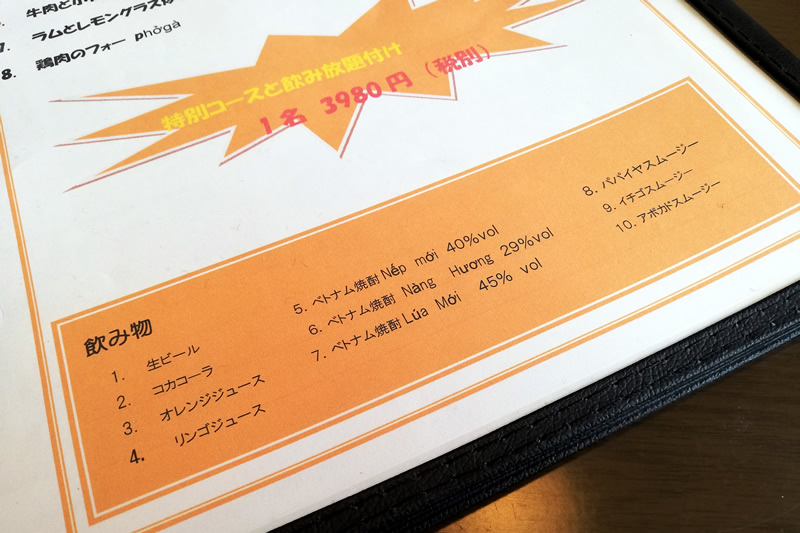 牛肉と
7. ラムとレモングラス炒
8. 鶏肉のフォー phởgà
特別コースと飲み放題付け
1名 3980円 (税別)
飲み物
1. 生ビール
2. コカコーラ
3. オレンジジュース
4. リンゴジュース
5. ベトナム焼酎 Nếp mới 40%vol
6. ベトナム焼酎 Nàng Hương 29%vol
7. ベトナム焼酎 Lúa Mới 45% vol
8. パパイヤスムージー
9. イチゴスムージー
10. アボカドスムージー